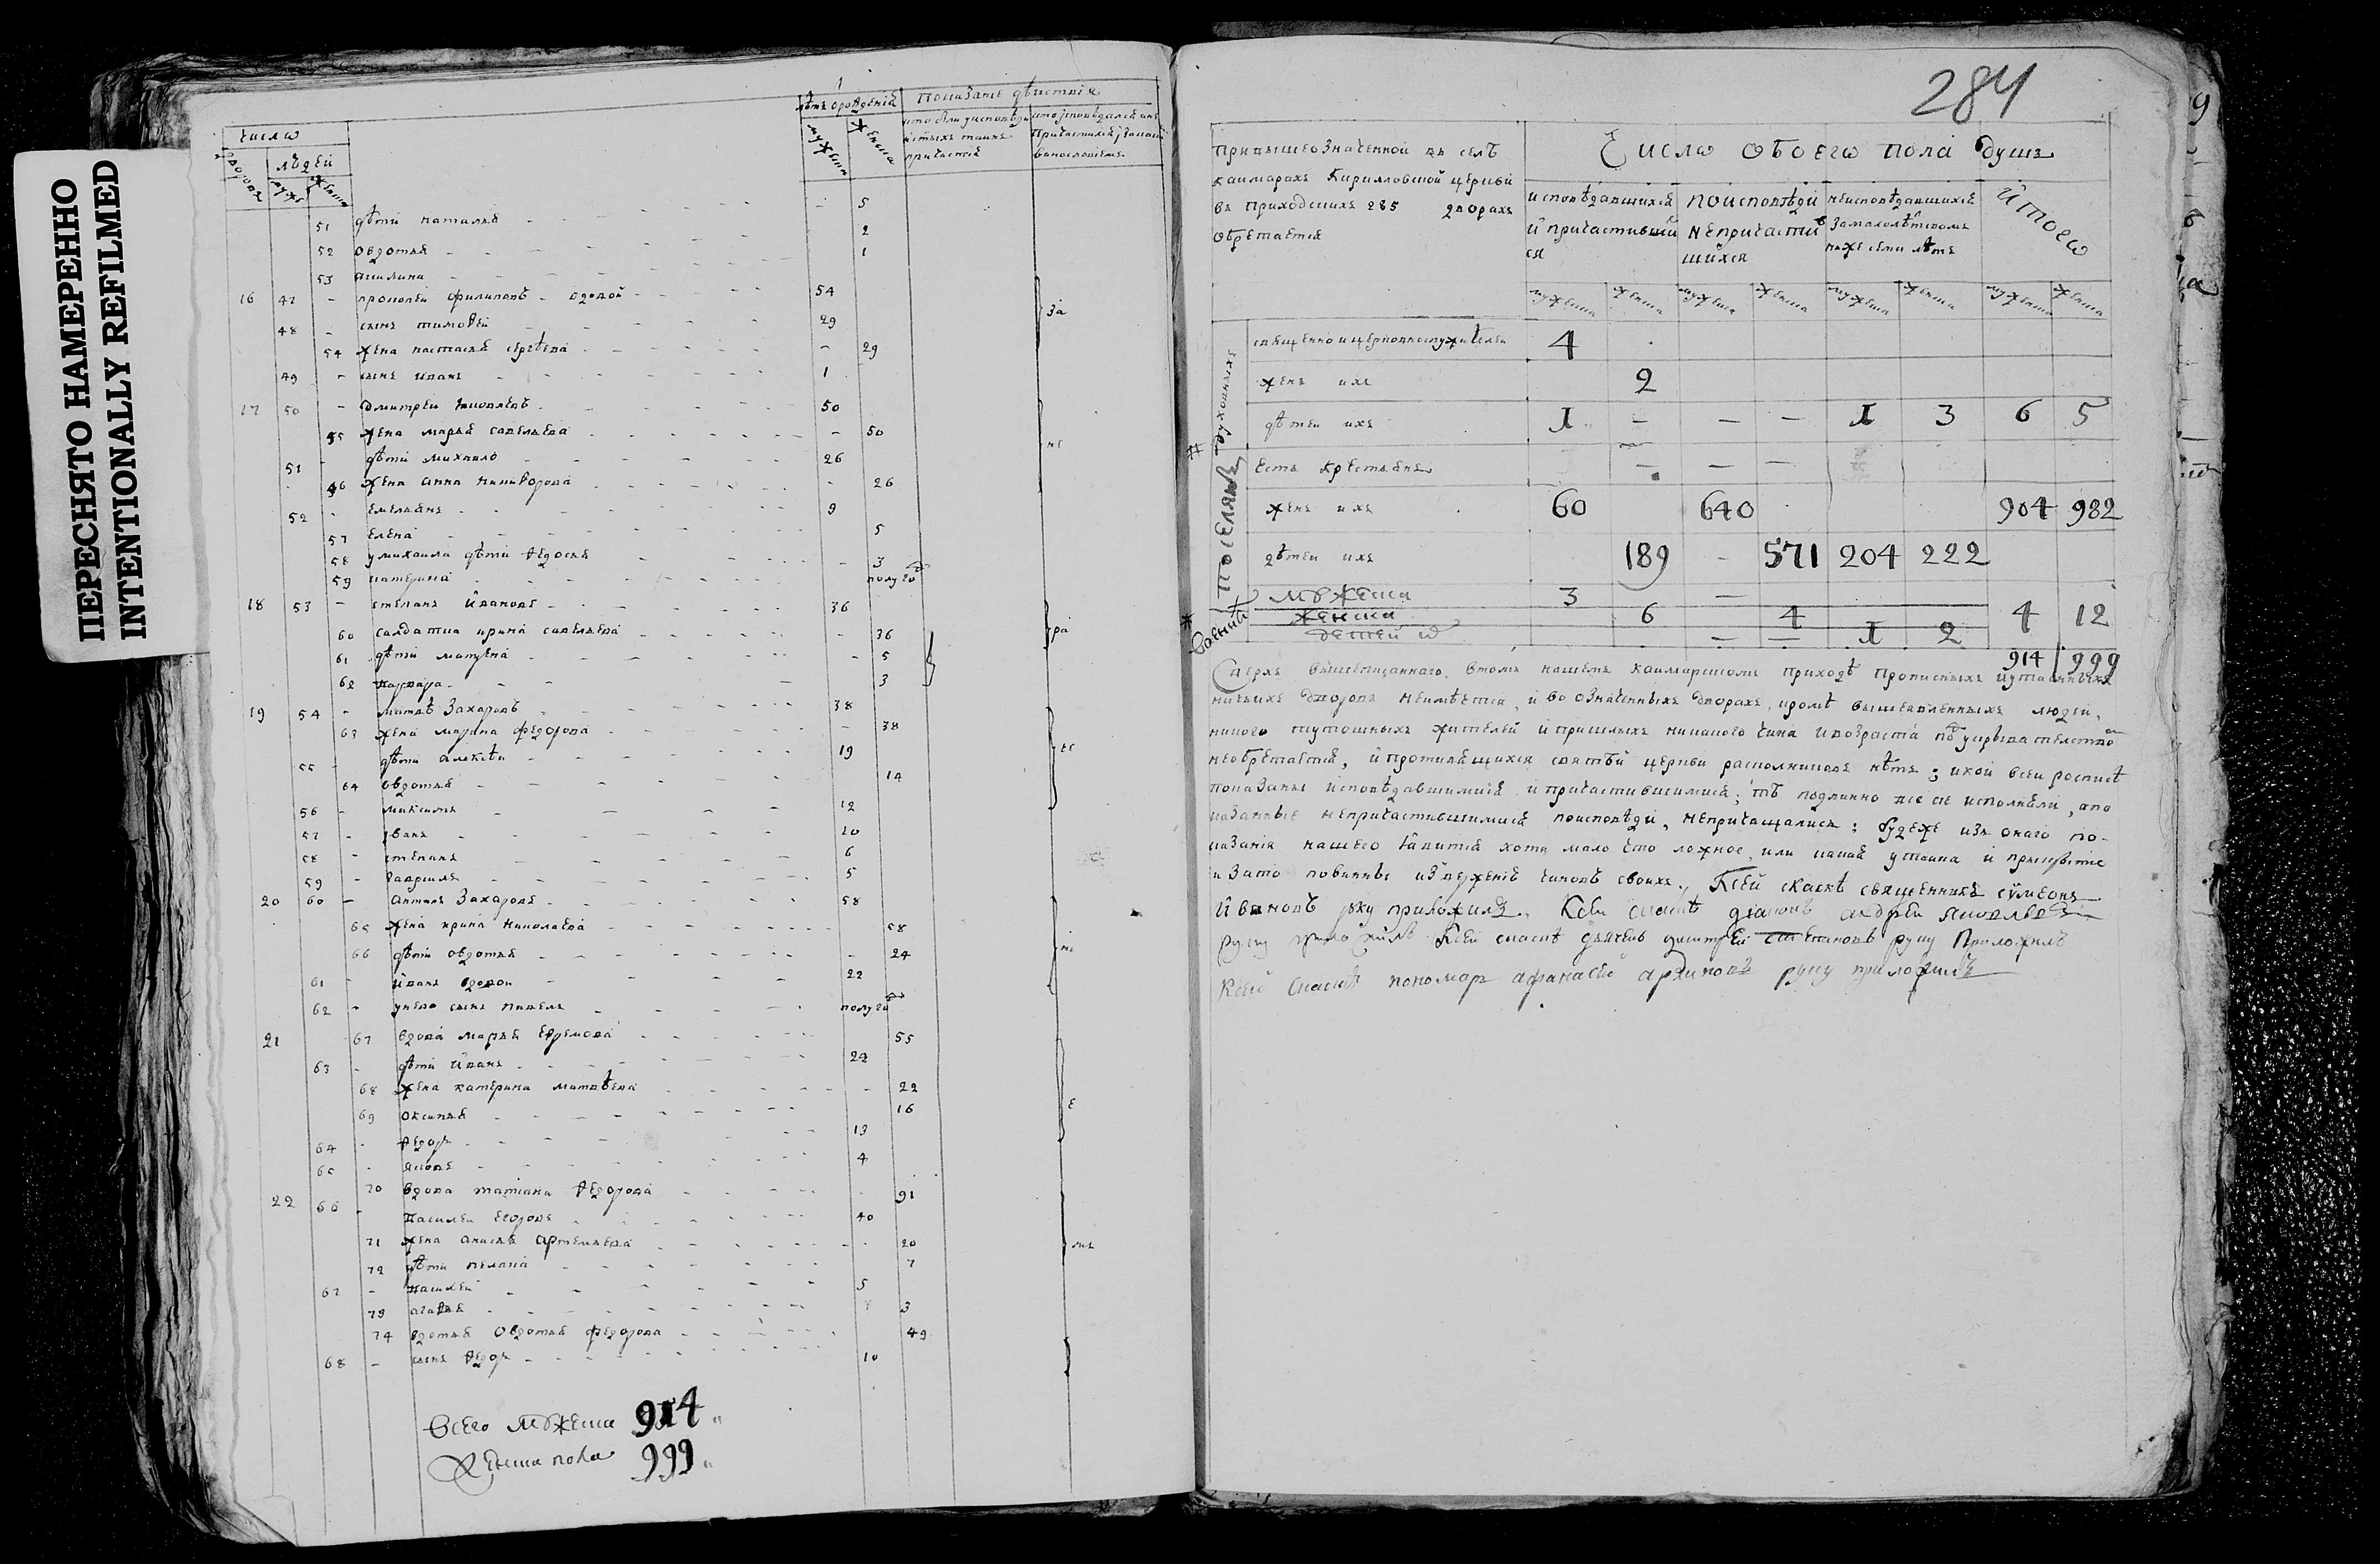 ПЕРЕСНЯТО НАМЕРЕННО
INTENTIONALLY REFILMED
число
людей
лѣтъ
показанїе
51 дѣти наталья 5
52 овдотья 2
53 акилина 1
16 47 - прокопеи филиповъ 54
48 - сынъ тимоѳеи 29
54 жена настасья сергѣева - 29
49 - сынъ иванъ 1
17 50 - дмитреи 50
55 жена марья савельева - 50
51 - дѣти михаило 26
56 жена анна никиѳорова - 26
52 - емельянъ 9
57 елена 5
58 у михаила дѣти ѳедосья - 3
59 катерина полуго
18 53 - степанъ ивановъ 36
60 салдатка ирина савельева - 36
61 дѣти матрена - 5
62 варвара 3
19 54 - матвѣ захаровъ 38
63 жена марина федорова - 38
55 - дѣти алексѣи 19
64 овдотья 14
56 - максимъ 12
57 - иванъ 10
58 - степанъ 6
59 - гаврила 5
20 60 - антипъ захаровъ 58
65 жена ирина николаева 58
66 дѣти овдотья - 24
61 - иванъ вдовой 22
62 - у него сынъ павелъ полуго
21 67 вдова марья ефремова 55
63 - дѣти иванъ 22
68 жена катерина матвѣева - 22
69 оксинья 16
64 - ѳедоръ 13
65 - яковъ 4
70 вдова татиана ѳедорова 91
22 66 - василеи егоровъ 40
71 жена анисья артемьева 20
72 дѣти пелагия 7
67 - василеи 5
73 агаѳья 3
74 вдотья овдотья федорова 49
68 - сынъ ѳедоръ 10
всего мужеска 914
женска пола 999
284
при вышеозначенной въ селѣ
каимарахъ кирилловской церкви
въ приходскихъ 285 дворахъ
обрѣтается
число обоего пола душъ
исповѣдавшихся и причастившихся
по исповѣди не причастившихся
неисповѣдавшихся за малолѣтствомъ ниже семи лѣтъ
итого
мужеска женска мужеска женска мужеска женска мужеска женска
духовныхъ
священно и церковнослужителеи 4
женъ ихъ 2
дѣтеи ихъ 1 - - - 1 3 6 5
поселянъ
есть крестьянъ - - -
женъ ихъ 60 640 904 982
дѣтеи ихъ 189 - 571 204 222
военны
мужеска 3 -
женска 6 4 4 12
детей - - 1 2
914 999
Сверхъ вышеписаннаго, в томъ нашемъ каимарскомъ приходѣ прописныхъ и утаенныхъ
ничьихъ дворовъ неимѣется, и во означенныхъ дворахъ, кромѣ вышеявленныхъ людеи,
никого тутошныхъ жителей и пришлыхъ никакого чина и возраста по укрывательство
необрѣтается, и противящихся святѣй церкви расколниковъ нѣтъ; и кои всеи росписѣ
показаны исповѣдавшимися и причастившимися, тѣ подлинно все исполняли, а по
казанные непричастившимися по исповѣди, непричащались; будеже изъ онаго по-
казанія нашего явится хотя мало что ложное, или какая утаика и прикрытие
и за то повинны изверженія чиновъ своихъ. К сей скаскѣ священникъ сумеонъ
Ивановъ руку приложилъ. К сеи скаскѣ диаконъ андреи яковлевъ
руку приложилъ К сеи скаскѣ дьячекъ дмитреи степановъ руку приложилъ
К сеи скаскѣ пономарь афанасеи архиповъ руку приложилъ